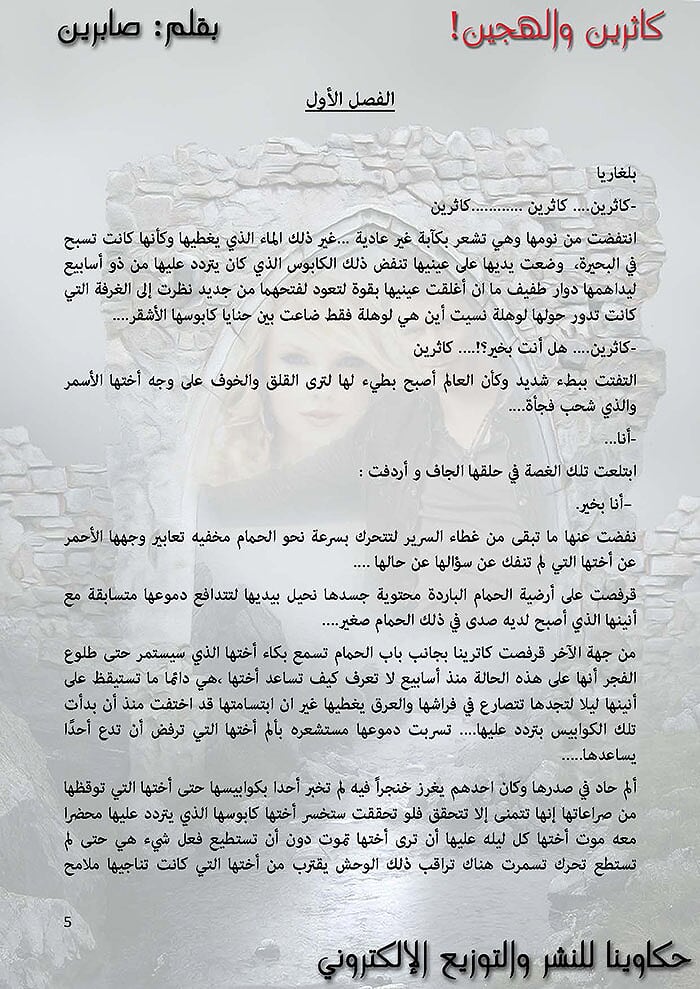 كاثرين والهجين!
بقلم: صابرين
الفصل الأول
بلغاريا
-كاثرين.... كاثرين ............كاثرين
انتفضت من نومها وهي تشعر بكآبة غير عادية ...غير ذلك الماء الذي يغطيها وكأنها كانت تسبح
في البحيرة، وضعت يديها على عينيها تنفض ذلك الكابوس الذي كان يتردد عليها من ذو أسابيع
ليداهمها دوار طفيف ما ان أغلقت عينيها بقوة لتعود لفتحهما من جديد نظرت إلى الغرفة التي
كانت تدور حولها لوهلة نسيت أين هي لوهلة فقط ضاعت بين حنايا كابوسها الأشقر....
-كاثرين.... هل أنت بخير؟!.... كاثرين
التفتت ببطء شديد وكأن العالم أصبح بطيء لها لترى القلق والخوف على وجه أختها الأسمر
والذي شحب فجأة....
-أنا...
ابتلعت تلك الغصة في حلقها الجاف و أردفت :
-أنا بخير.
نفضت عنها ما تبقى من غطاء السرير لتتحرك بسرعة نحو الحمام مخفيه تعابير وجهها الأحمر
عن أختها التي لم تنفك عن سؤالها عن حالها ....
قرفصت على أرضية الحمام الباردة محتوية جسدها نحيل بيديها لتتدافع دموعها متسابقة مع
أنينها الذي أصبح لديه صدى في ذلك الحمام صغير....
من جهة الآخر قرفصت كاترينا بجانب باب الحمام تسمع بكاء أختها الذي سيستمر حتى طلوع
الفجر أنها على هذه الحالة منذ أسابيع لا تعرف كيف تساعد أختها ،هي دائما ما تستيقظ على
أنينها ليلا لتجدها تتصارع في فراشها والعرق يغطيها غير ان ابتسامتها قد اختفت منذ أن بدأت
تلك الكوابيس بتردد عليها.... تسربت دموعها مستشعره بألم أختها التي ترفض أن تدع أحدًا
يساعدها.....
ألم حاد في صدرها وكان احدهم يغرز خنجراً فيه لم تخبر أحدا بكوابيسها حتى أختها التي توقظها
من صراعاتها إنها تتمنى إلا تتحقق فلو تحققت ستخسر أختها كابوسها الذي يتردد عليها محضرا
معه موت أختها كل ليله عليها أن ترى أختها تموت دون أن تستطيع فعل شيء هي حتى لم
تستطع تحرك تسمرت هناك تراقب ذلك الوحش يقترب من أختها التي كانت تناجيها ملامح
5
حكاوينا للنشر والتوزيع الإلكتروني